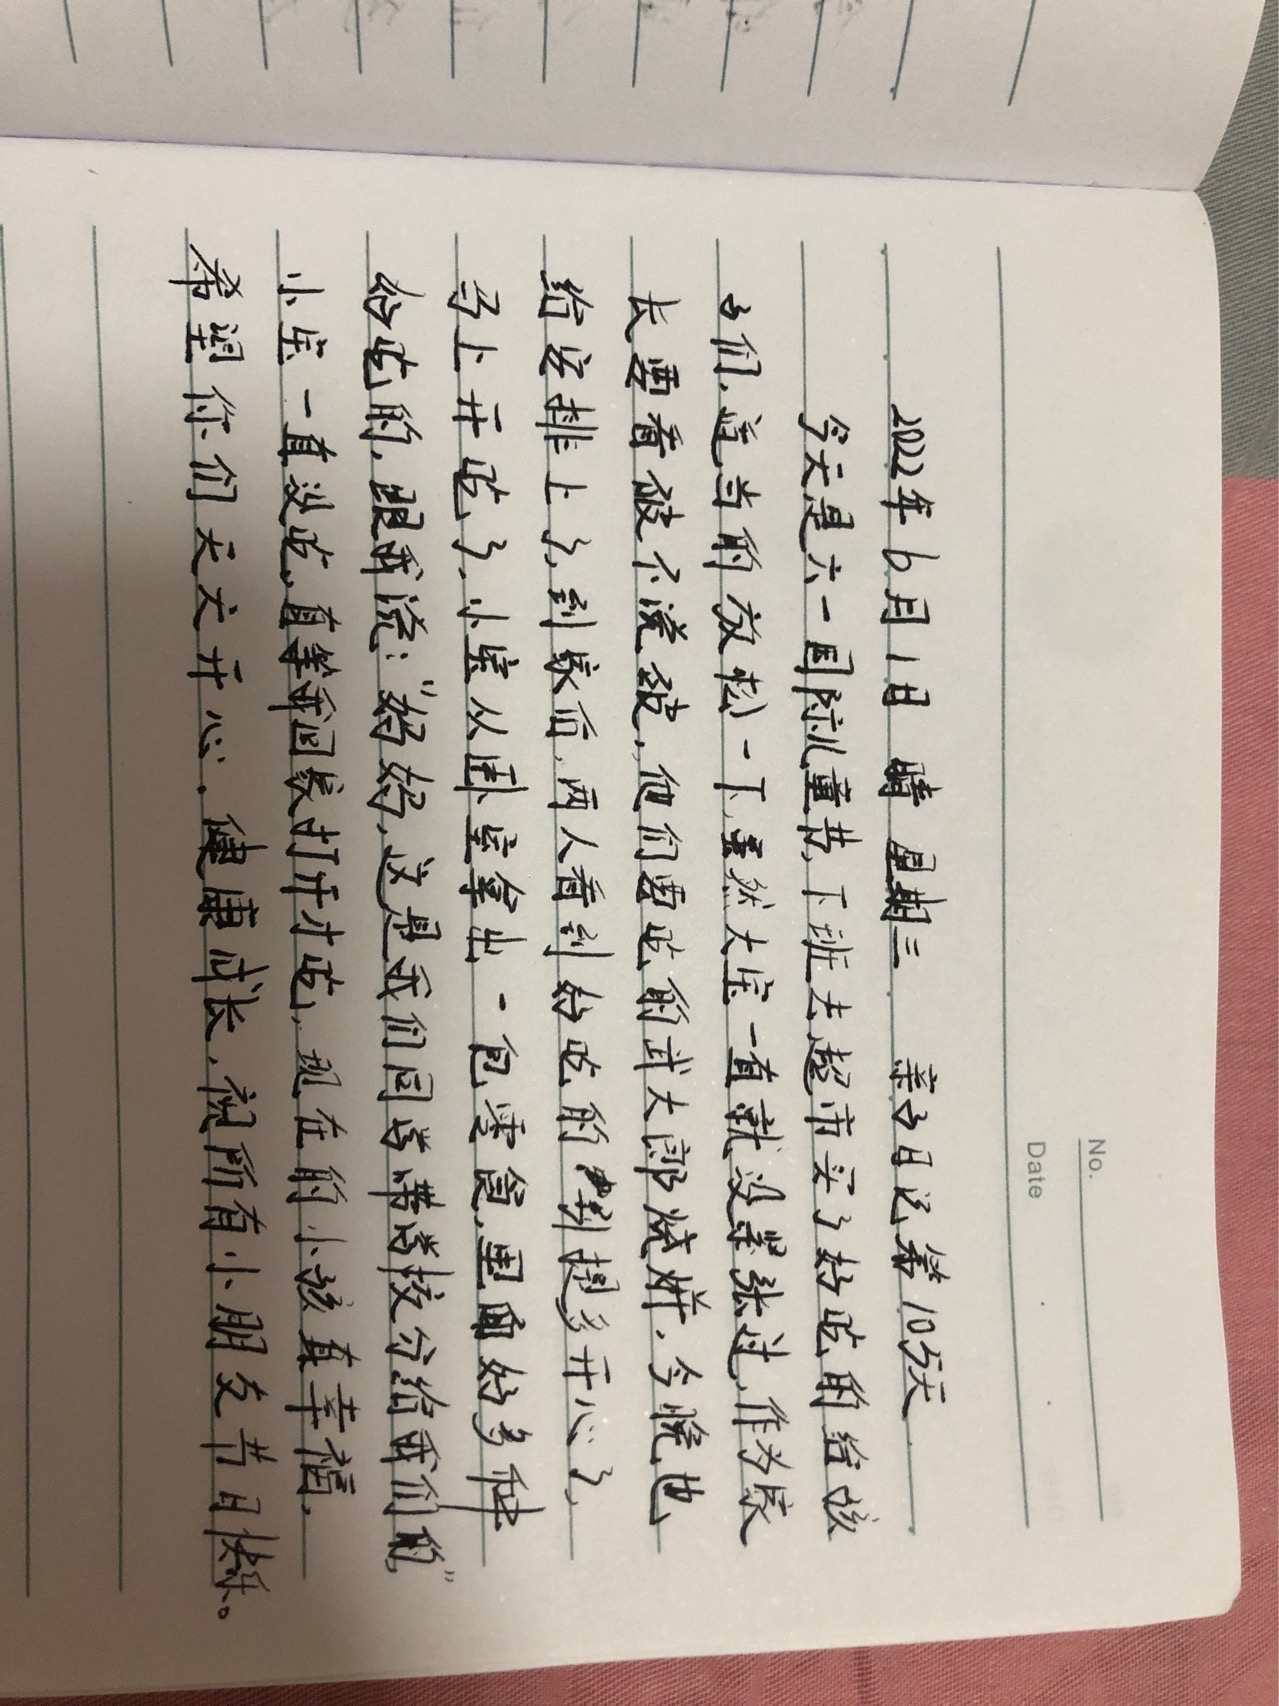 No.
Date
2022年6月1日 晴 星期三 亲子日记第105天
今天是六一国际儿童节,下班去超市买了好吃的给孩
子们,适当的放松一下,虽然大宝一直就没紧张过,作为家
长要看破不说破,他们要吃的武大郎烧饼,今晚也
给安排上了,到家后,两人看到好吃的别提多开心了,
马上开吃了,小宝从卧室拿出一包零食,里面好多种
好吃的,跟我说:“妈妈,这是我们同学带学校分给我们的,”
小宝一直没吃,直等我回家打开才吃,现在的小孩真幸福,
希望你们天天开心,健康成长,祝所有小朋友节日快乐。